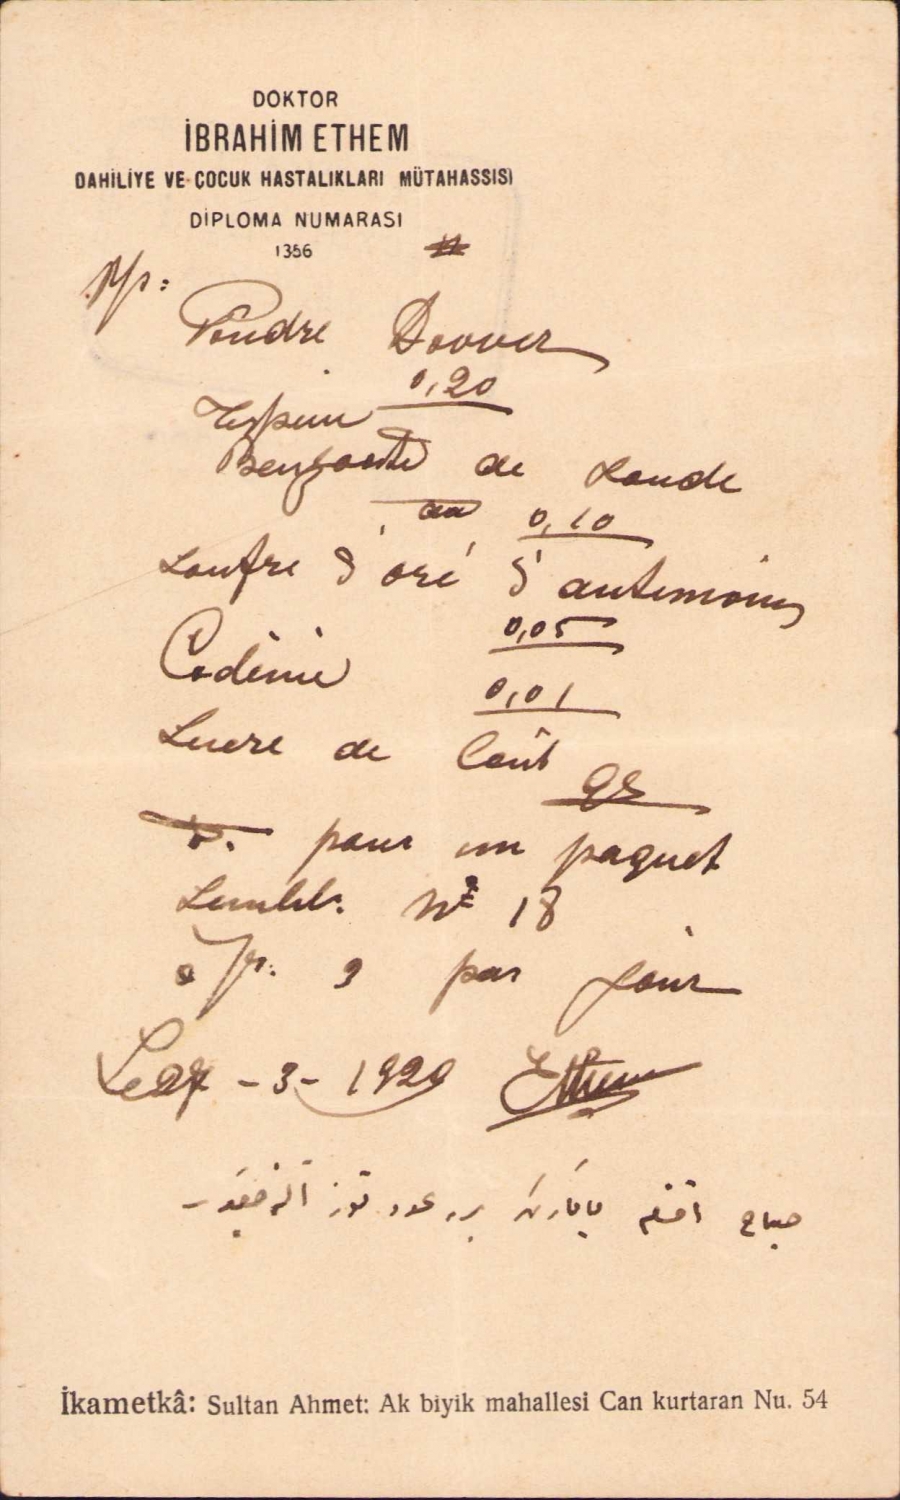 DOKTOR
İBRAHİM ETHEM
DAHİLİYE VE ÇOCUK HASTALIKLARI MÜTAHASSISI
DİPLOMA NUMARASI
1356
Rp:
Poudre Dower
0,20
Terpine
Benzoate de Soude
aa 0,10
Soufre d'oré d'antimoine
0,05
Codeine
0,01
Sucre de lait
qs
pour un paquet
Sembl. No 18
3 par jour
Le 27-3-1929 Ethem
صباح اقشام ياتاركن برر عدد توز آله جقدر
İkametkâ: Sultan Ahmet: Ak biyik mahallesi Can kurtaran Nu. 54